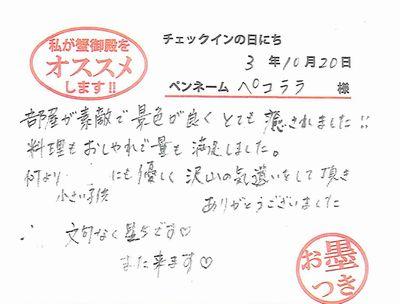 私が蟹御殿を
オススメ
します!!
チェックインの日にち
3 年 10 月 20 日
ペンネーム ペコララ 様
部屋が素敵で景色が良くとても癒されました!!
料理もおしゃれで量も満足しました。
何より 小さい子供 にも優しく沢山の気遣いをして頂き
ありがとうございました
∴ 文句なく星5です♡
また来ます♡
お墨つき